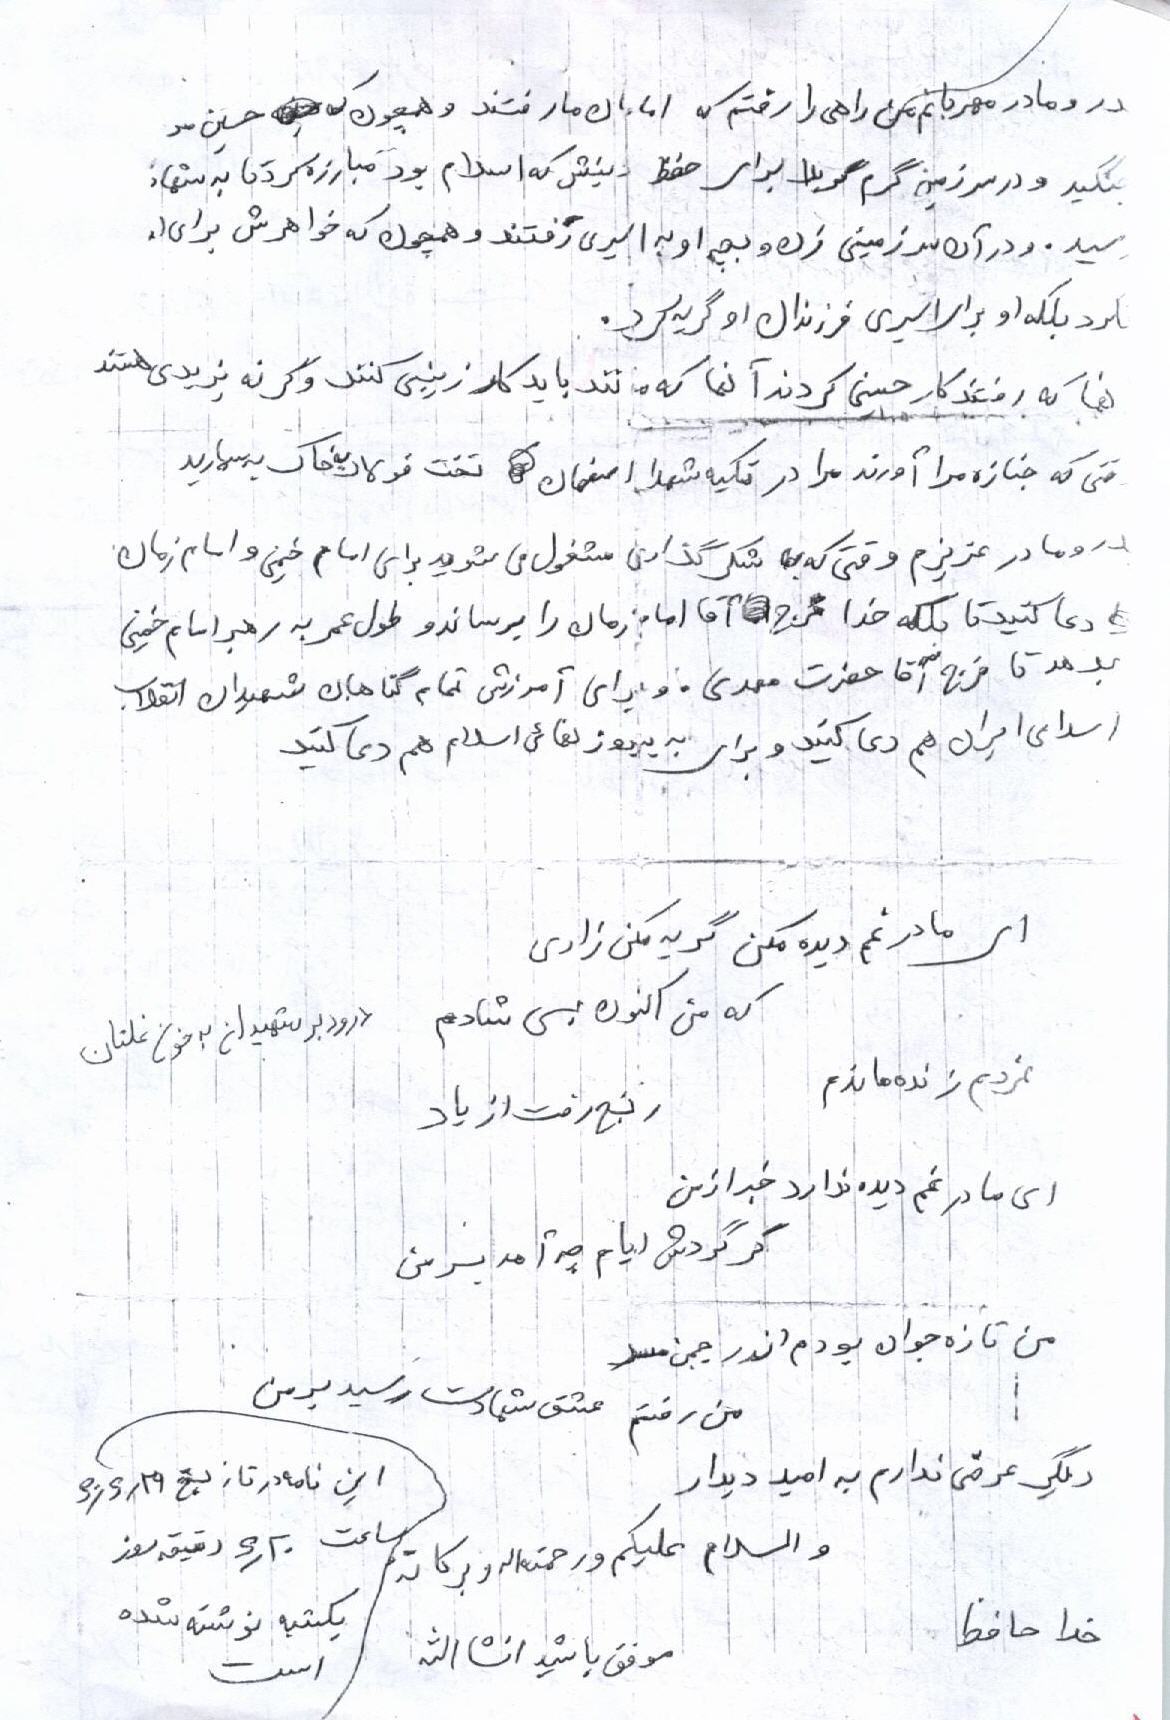 در و مادر مهربانم من راهی را رفتم که امامان ما رفتند و همچون که حسین
جنگید و در سرزمین گرم کربلا برای حفظ دینش که اسلام بود مبارزه کرد تا به شهادت
رسید. و در آن سرزمینی زن و بچه او به اسیری رفتند و همچون که خواهرش برای
نکرد بلکه او برای اسیری فرزندان او گریه کرد.
آنها که رفتند کار حسینی کردند آنها که ماندند باید کار زینبی کنند وگرنه یزیدی هستند
قتی که جنازه مرا آورند مرا در تکیه شهدا اصفهان تخت فولاد به خاک بسپارید
در و مادر عزیزم وقتی که به شکرگذاری مشغول می شوید برای امام خمینی و امام زمان
دعا کنید تا بلکه خدا فرج آقا امام زمان را برساند و طول عمر به رهبر امام خمینی
بدهد تا فرج آقا حضرت مهدی. و برای آمرزش تمام گناهان شهیدان انقلاب
اسلامی ایران هم دعا کنید و برای به پیروز نهائی اسلام هم دعا کنید
ای مادر غم دیده مکن گریه مکن زاری
که من اکنون بسی شادم
درود بر شهیدان به خون غلتان
نمردم زنده ماندم
رنج رفت از یاد
ای مادر غم دیده ندارد خبر از من
کز گردش ایام چه آمد بسر من
من تازه جوان بودم اندر چمن
من رفتم عشق شهادت رسید بر من
دیگر عرضی ندارم به امید دیدار
و السلام علیکم و رحمته اله و برکاته
خدا حافظ
موفق باشید انشا الله
این نامه در تاریخ
ساعت دقیقه روز
یکشنبه نوشته شده
است